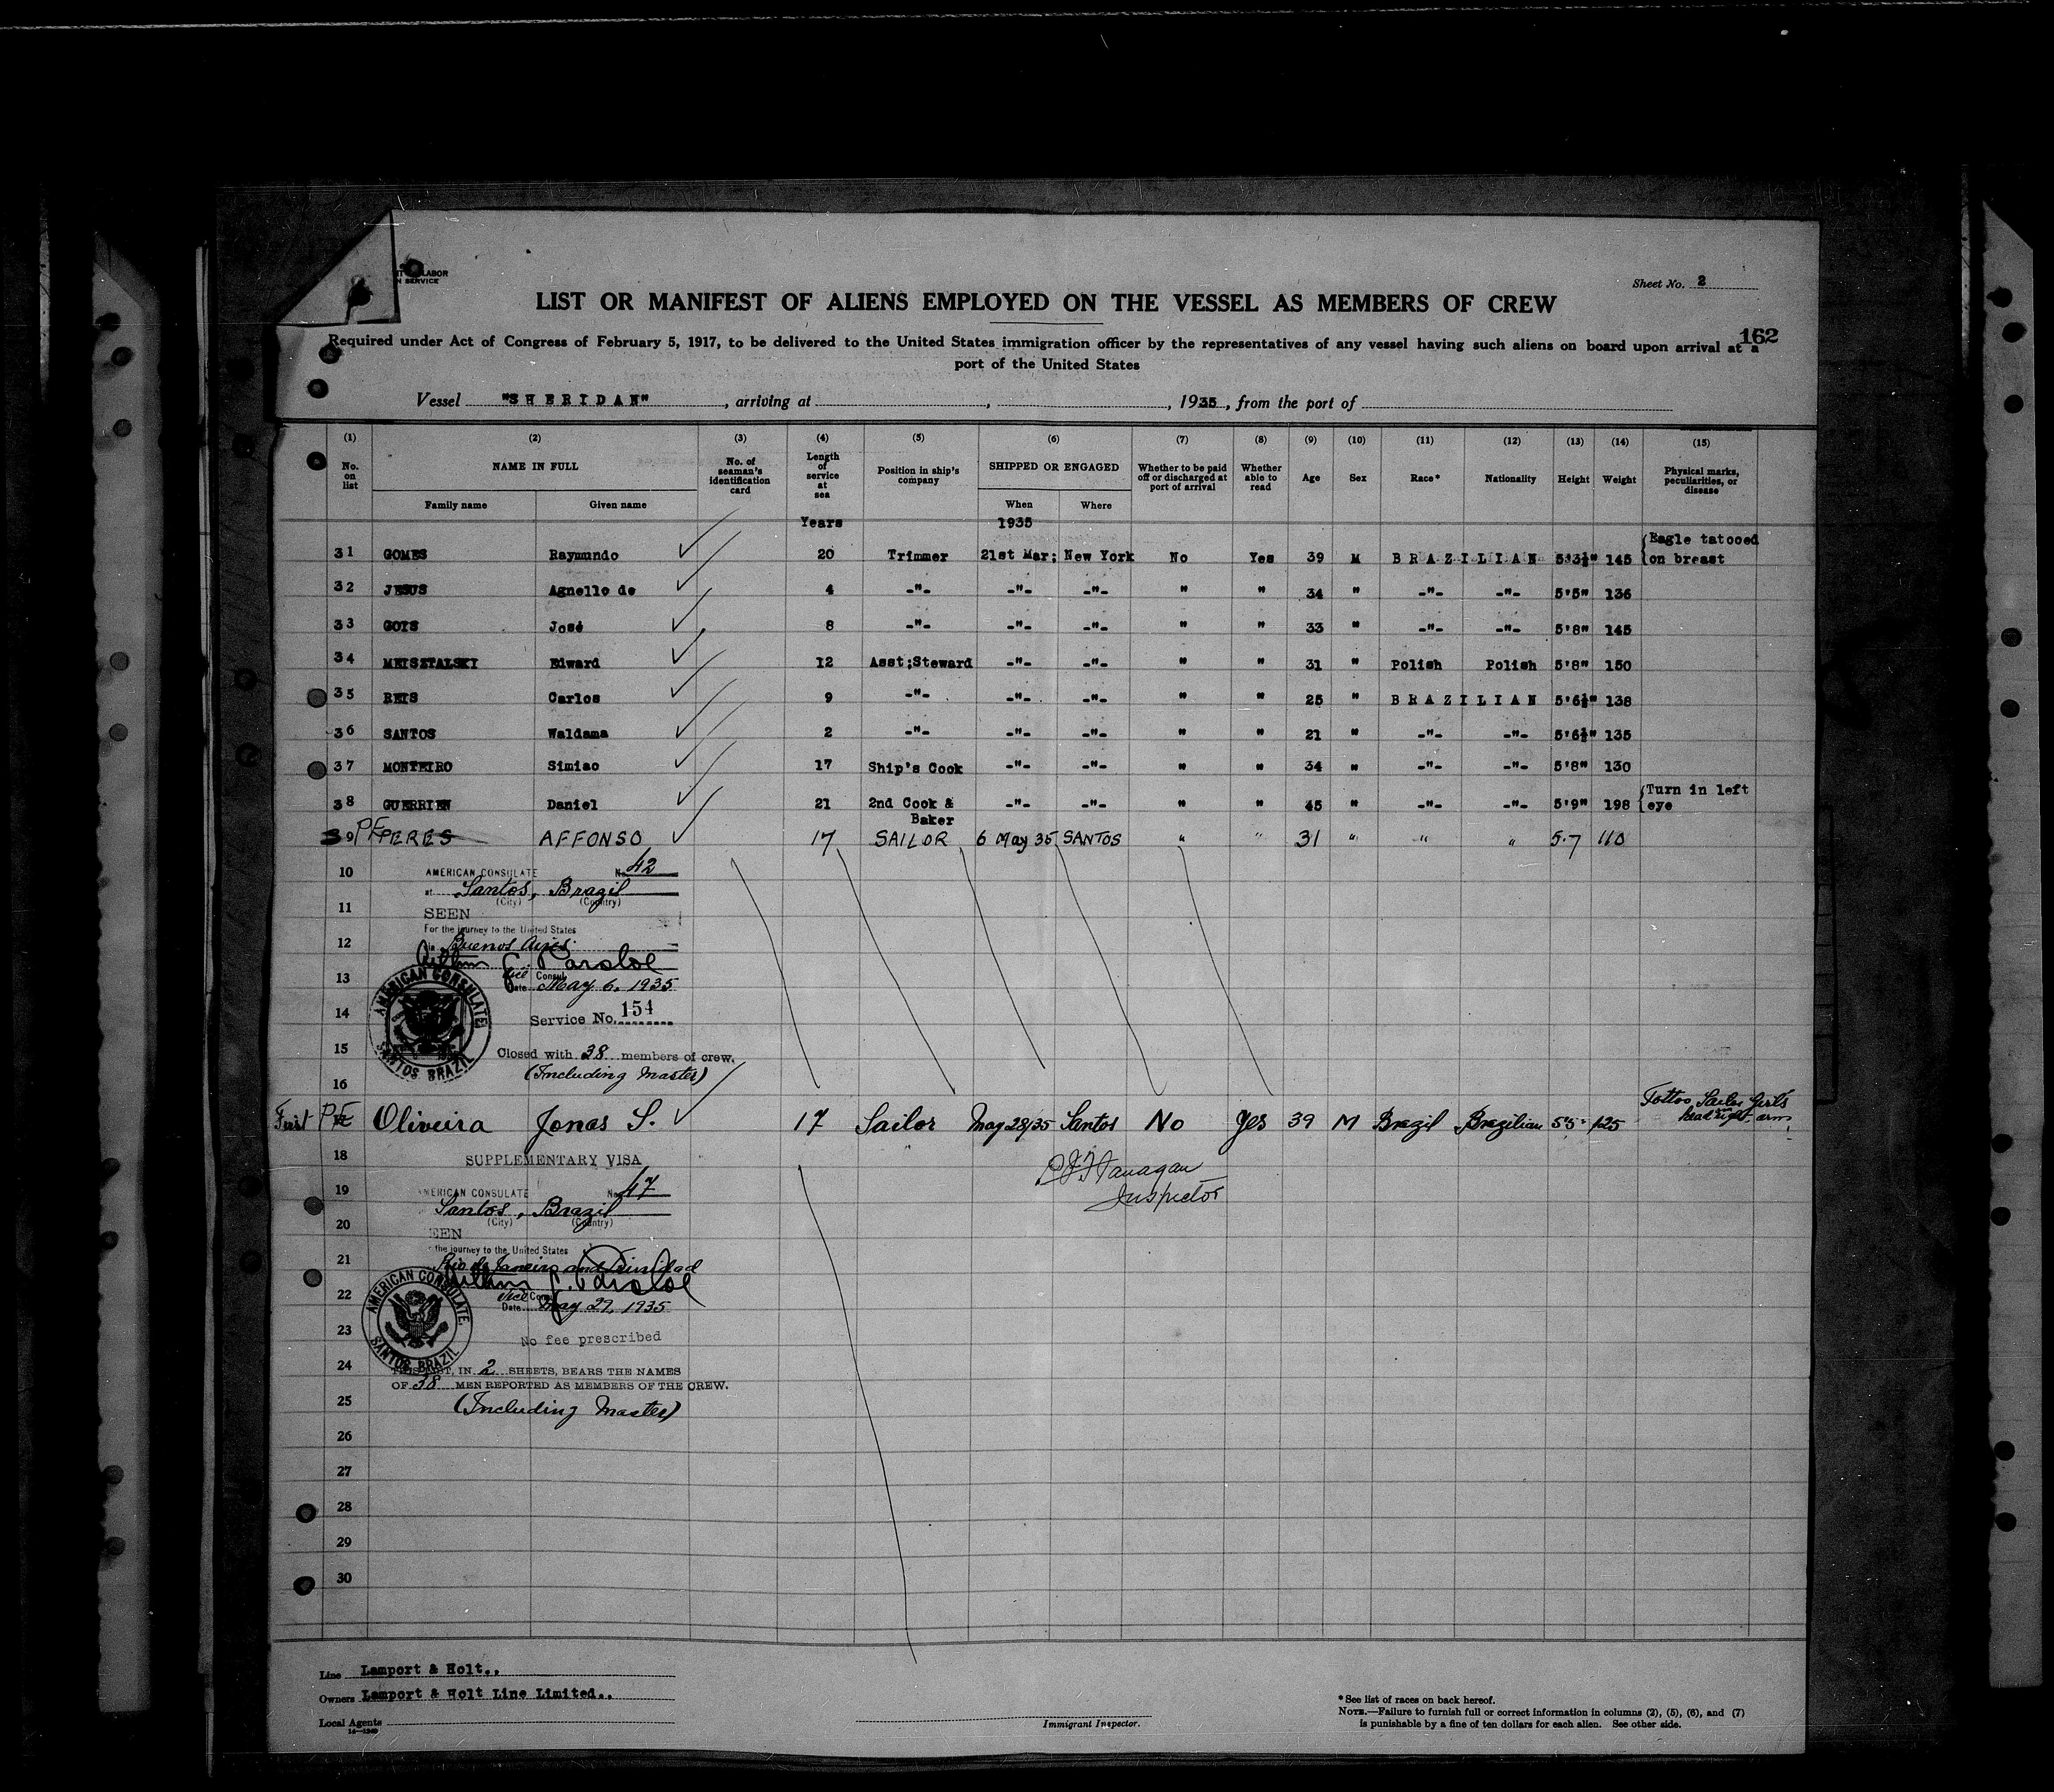 LABOR
SERVICE
Sheet No. 2
LIST OR MANIFEST OF ALIENS EMPLOYED ON THE VESSEL AS MEMBERS OF CREW
162
Required under Act of Congress of February 5, 1917, to be delivered to the United States immigration officer by the representatives of any vessel having such aliens on board upon arrival at a
port of the United States
Vessel "SHERIDAN", arriving at , , 1935, from the port of
(1) (2) (3) (4) (5) (6) (7) (8) (9) (10) (11) (12) (13) (14) (15)
No. on list NAME IN FULL No. of seaman's identification card Length of service at sea Position in ship's company SHIPPED OR ENGAGED Whether to be paid off or discharged at port of arrival Whether able to read Age Sex Race* Nationality Height Weight Physical marks, peculiarities, or disease
Family name Given name When Where
Years 1935
31 GOMES Raymundo 20 Trimmer 21st Mar; New York No Yes 39 M BRAZILIAN 5'3½" 145 Eagle tatooed on breast
32 JESUS Agnello de 4 -"- -"- -"- " " 34 " -"- -"- 5'5" 136
33 GOIS José 8 -"- -"- -"- " " 33 " -"- -"- 5'8" 145
34 MEISZTALSKI Edward 12 Asst;Steward -"- -"- " " 31 " Polish Polish 5'8" 150
35 REIS Carlos 9 -"- -"- -"- " " 25 " BRAZILIAN 5'6½" 138
36 SANTOS Waldama 2 -"- -"- -"- " " 21 " -"- -"- 5'6½" 135
37 MONTEIRO Simiao 17 Ship's Cook -"- -"- " " 34 " -"- -"- 5'8" 130
38 GUERRIEN Daniel 21 2nd Cook & Baker -"- -"- " " 45 " -"- -"- 5'9" 198 Turn in left eye
39 PERES AFFONSO 17 SAILOR 6 May 35 SANTOS " " 31 " " " 5.7 110
10 AMERICAN CONSULATE No 42
at Santos, Brazil
(City) (Country)
11 SEEN
For the journey to the United States
12 Buenos Aires
13 Vice Consul
Date May 6, 1935
AMERICAN CONSULATE
SANTOS BRAZIL
14 Service No. 154
15 Closed with 38 members of crew.
(Including Master)
16
First PE Oliveira Jonas S. 17 Sailor May 28/35 Santos No Yes 39 M Brazil Brazilian 5'5" 125 Tottoo Sailor Girls head on right arm
18 SUPPLEMENTARY VISA
Flanagan
Inspector
19 AMERICAN CONSULATE No 47
Santos, Brazil
20 (City) (Country)
EEN
21 the journey to the United States
Rio de Janeiro and Trinidad
22 Vice Consul
Date May 29, 1935
AMERICAN CONSULATE
SANTOS BRAZIL
23 No fee prescribed
24 THIS LIST, IN 2 SHEETS, BEARS THE NAMES
OF 38 MEN REPORTED AS MEMBERS OF THE CREW.
25 (Including Master)
26
27
28
29
30
Line Lamport & Holt..
Owners Lamport & Holt Line Limited..
Local Agents
14—1240
Immigrant Inspector.
*See list of races on back hereof.
NOTE.—Failure to furnish full or correct information in columns (2), (5), (6), and (7)
is punishable by a fine of ten dollars for each alien. See other side.